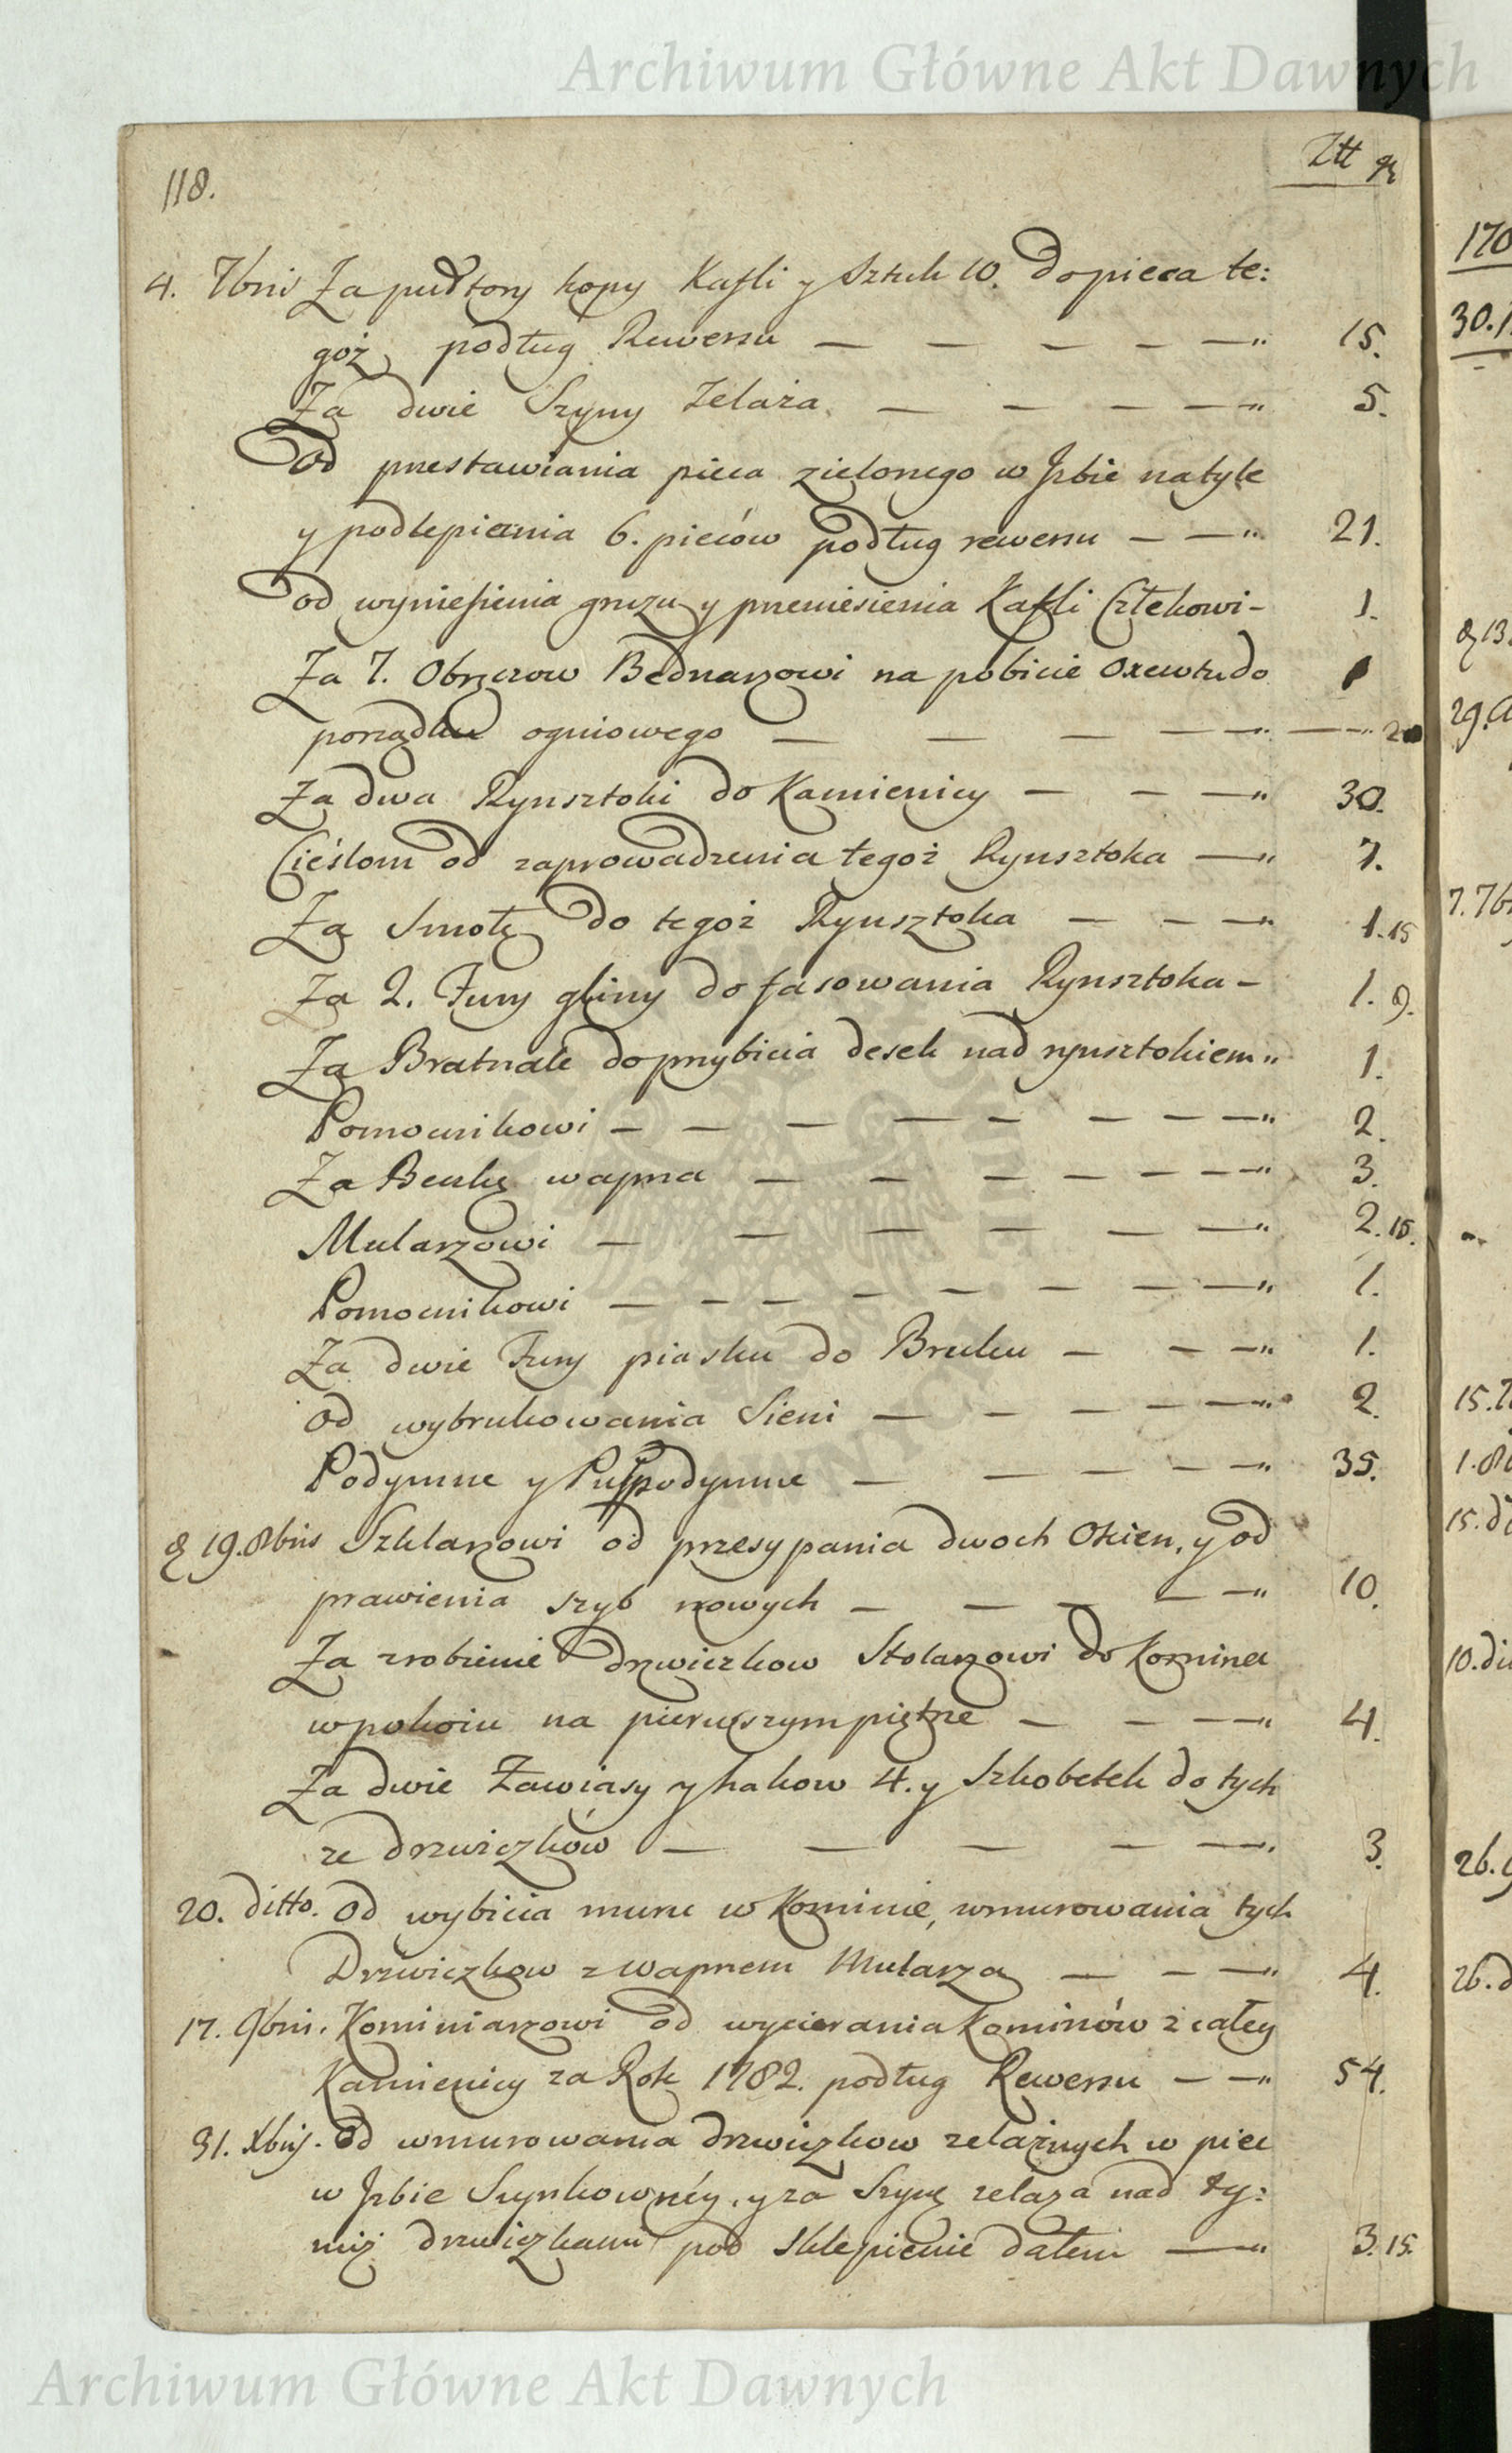 Archiwum Główne Akt Dawnych
Ztt gr
118.
4. 7bris Za pułtory kopy Kafli y Sztuk 10. do pieca te:
goż podług Rewersu — — — — —" 15.
Za dwie Szyny żelaza — — — —" 5.
Od przestawiania pieca zielonego w Jzbie na tyle
y podlepienia 6. pieców podług rewersu — —" 21.
od wyniesienia gruzu y przeniesienia Kafli Człekowi - 1.
Za 7. Obręczow Bednarzowi na pobicie Oxewtu do
porządku ogniowego — — — — —" —" 20
Za dwa Rynsztoki do Kamienicy — — —" 30.
Cieślom od zaprowadzenia tegoż Rynsztoka —" 7.
Za Smołę do tegoż Rynsztoka — — —" 1. 15
Za 2. Fury gliny do fasowania Rynsztoka - 1. 9.
Za Bratnale do przybicia desek nad rynsztokiem " 1.
Pomocnikowi — — — — — — — —" 2.
Za Beczkę wapna — — — — — — —" 3.
Mularzowi — — — — — —" 2. 15.
Pomocnikowi — — — — — — — —" 1.
Za dwie Fury piasku do Bruku — — —" 1.
Od wybrukowania Sieni — — — — —" 2.
Podymne y Pułpodymne — — — — —" 35.
& 19. 8bris Szklarzowi od przesypania dwoch Okien, y od
prawienia szyb nowych — — — — —" 10.
Za zrobienie drzwiczkow Stolarzowi do Komina
w pokoiu na pierwszym piętrze — — —" 4.
Za dwie Zawiasy y hakow 4. y Szkobelek do tych
ze drzwiczków — — — — —. 3.
20. ditto. Od wybicia muru w Kominie, wmurowania tych
Drzwiczkow z wapnem Mularza — — —" 4.
17. 9bris. Kominiarzowi od wycierania Kominów z całey
Kamienicy za Rok 1782. podług Rewersu — —" 54.
31. Xbris. Od wmurowania drzwiczkow żelaznych w piec
w Jzbie Szynkownéy, y za Szynę żelaza nad ty:
miż drzwiczkami pod Sklepienie dałem —" 3. 15.
170
30.
& 13.
29.
7. 7b
15.
1. 8b
15. d
10. di
26.
26. d
Archiwum Główne Akt Dawnych